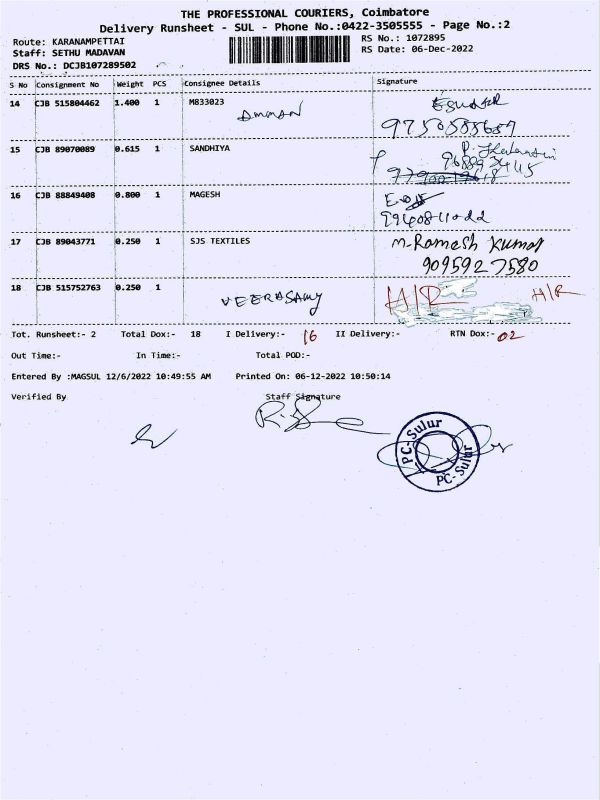 THE PROFESSIONAL COURIERS, Coimbatore
Delivery Runsheet - SUL - Phone No.:0422-3505555 - Page No.:2
Route: KARANAMPETTAI
RS No.: 1072895
Staff: SETHU MADAVAN
RS Date: 06-Dec-2022
DRS No.: DCJB107289502
S No Consignment No Weight PCS Consignee Details Signature
14 CJB 515804462 1.400 1 M833023
AMMAN
15 CJB 89070089 0.615 1 SANDHIYA
16 CJB 88849408 0.800 1 MAGESH
17 CJB 89043771 0.250 1 SJS TEXTILES M.Ramesh Kumar
9095927580
18 CJB 515752763 0.250 1 VEERASAMY H/R H/R
Tot. Runsheet:- 2 Total Dox:- 18 I Delivery:- 16 II Delivery:- RTN Dox:- 02
Out Time:- In Time:- Total POD:-
Entered By :MAGSUL 12/6/2022 10:49:55 AM Printed On: 06-12-2022 10:50:14
Verified By Staff Signature
PC-Sulur
PC-Sulur